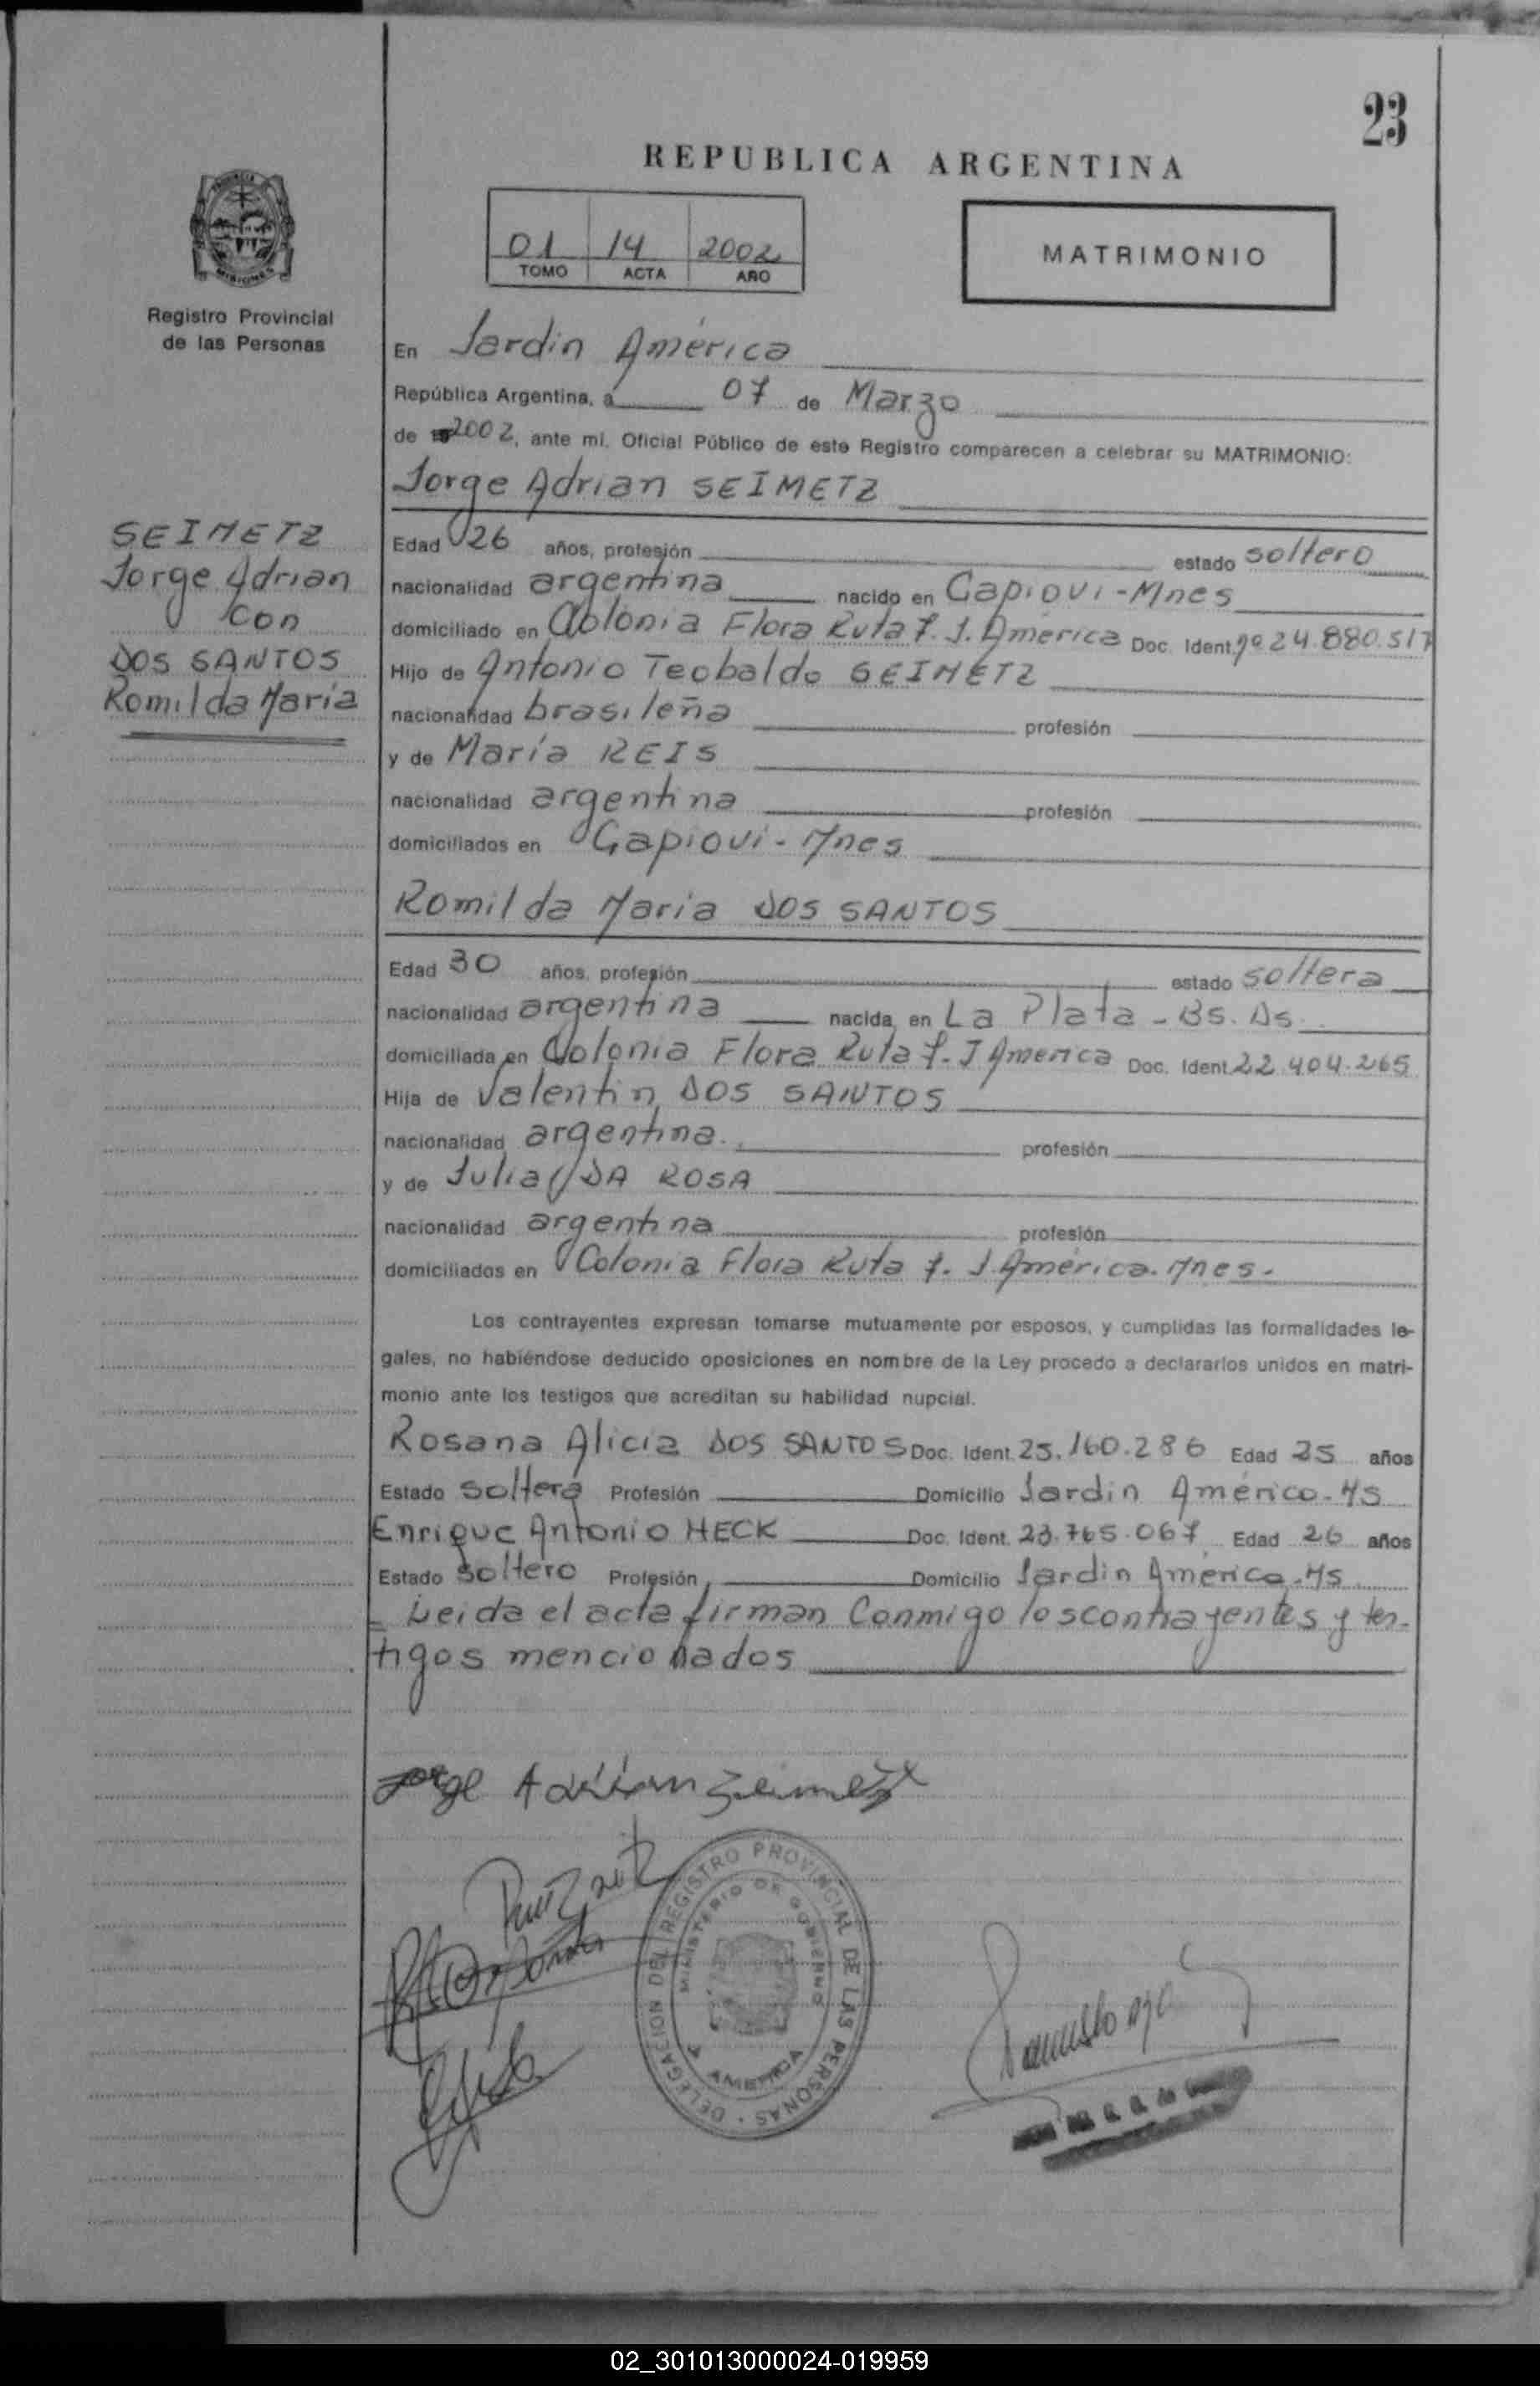 23
REPUBLICA ARGENTINA
01 14 2002
TOMO ACTA AÑO
MATRIMONIO
PROVINCIA
MISIONES
Registro Provincial
de las Personas
En Jardin América
República Argentina, a 07 de Marzo
de 2002, ante mi, Oficial Público de este Registro comparecen a celebrar su MATRIMONIO:
Jorge Adrian SEIMETZ
SEIMETZ
Jorge Adrian
con
DOS SANTOS
Romilda Maria
Edad 26 años, profesión estado soltero
nacionalidad argentina nacido en Capiovi-Mnes
domiciliado en Colonia Flora Ruta 7. J. América Doc. Ident. Nº 24.880.517
Hijo de Antonio Teobaldo SEIMETZ
nacionalidad brasileña profesión
y de María REIS
nacionalidad argentina profesión
domiciliados en Capiovi - Mnes
Romilda Maria DOS SANTOS
Edad 30 años, profesión estado soltera
nacionalidad argentina nacida en La Plata - Bs. As.
domiciliada en Colonia Flora Ruta 7. J América Doc. Ident. 22.404.265
Hija de Valentin DOS SANTOS
nacionalidad argentina. profesión
y de Julia DA ROSA
nacionalidad argentina profesión
domiciliados en Colonia Flora Ruta 7. J América. Mnes.
Los contrayentes expresan tomarse mutuamente por esposos, y cumplidas las formalidades le-
gales, no habiéndose deducido oposiciones en nombre de la Ley procedo a declararlos unidos en matri-
monio ante los testigos que acreditan su habilidad nupcial.
Rosana Alicia DOS SANTOS Doc. Ident. 25.160.286 Edad 25 años
Estado soltera Profesión Domicilio Jardin América-Ms
Enrique Antonio HECK Doc. Ident. 23.765.067 Edad 26 años
Estado soltero Profesión Domicilio Jardin América-Ms
- Leida el acta firman Conmigo los contrayentes y tes-
tigos mencionados
Jorge Adrian Seimetz
DELEGACION DEL REGISTRO PROVINCIAL DE LAS PERSONAS
MINISTERIO DE GOBIERNO
AMERICA
02_301013000024-019959